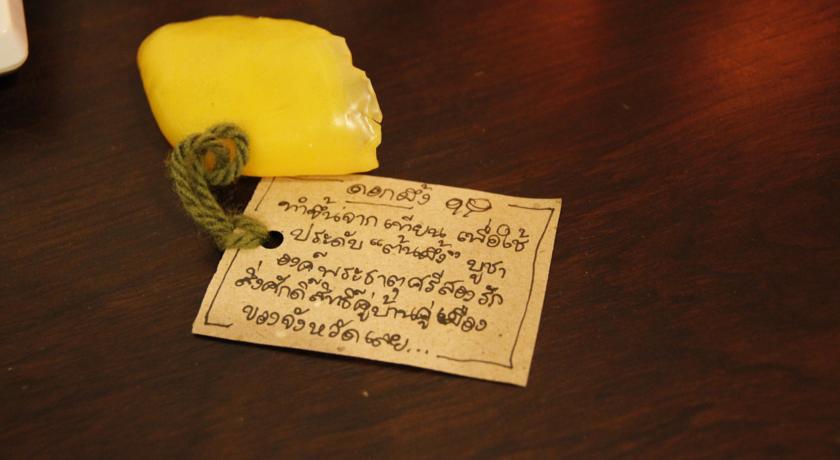 ดอกผึ้ง
ทำขึ้นจาก เทียน เพื่อใช้
ประดับ “ต้นผึ้ง” บูชา
องค์พระธาตุศรีสองรัก
สิ่งศักดิ์สิทธิ์คู่บ้านคู่เมือง
ของจังหวัดเลย...